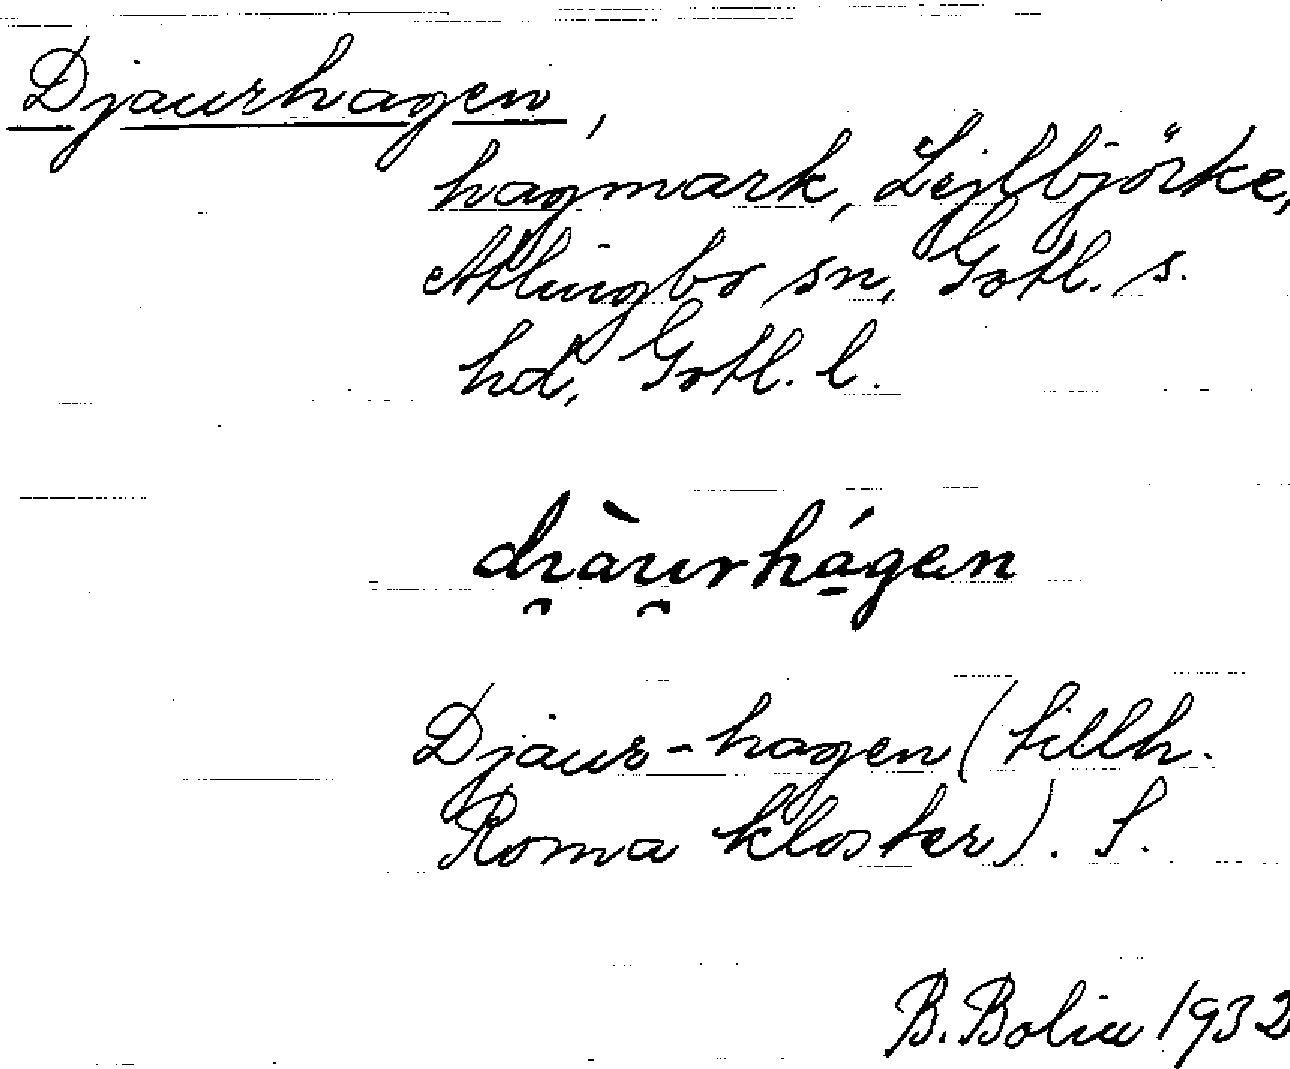 Djaurhagen,
hagmark, Lejlbjörke,
Atlingbo sn, Gotl. s.
hd, Gotl. l.
di̯àu̯rhágen
Djaur-hagen (tillh.
Roma kloster). S.
B. Bolin 1932